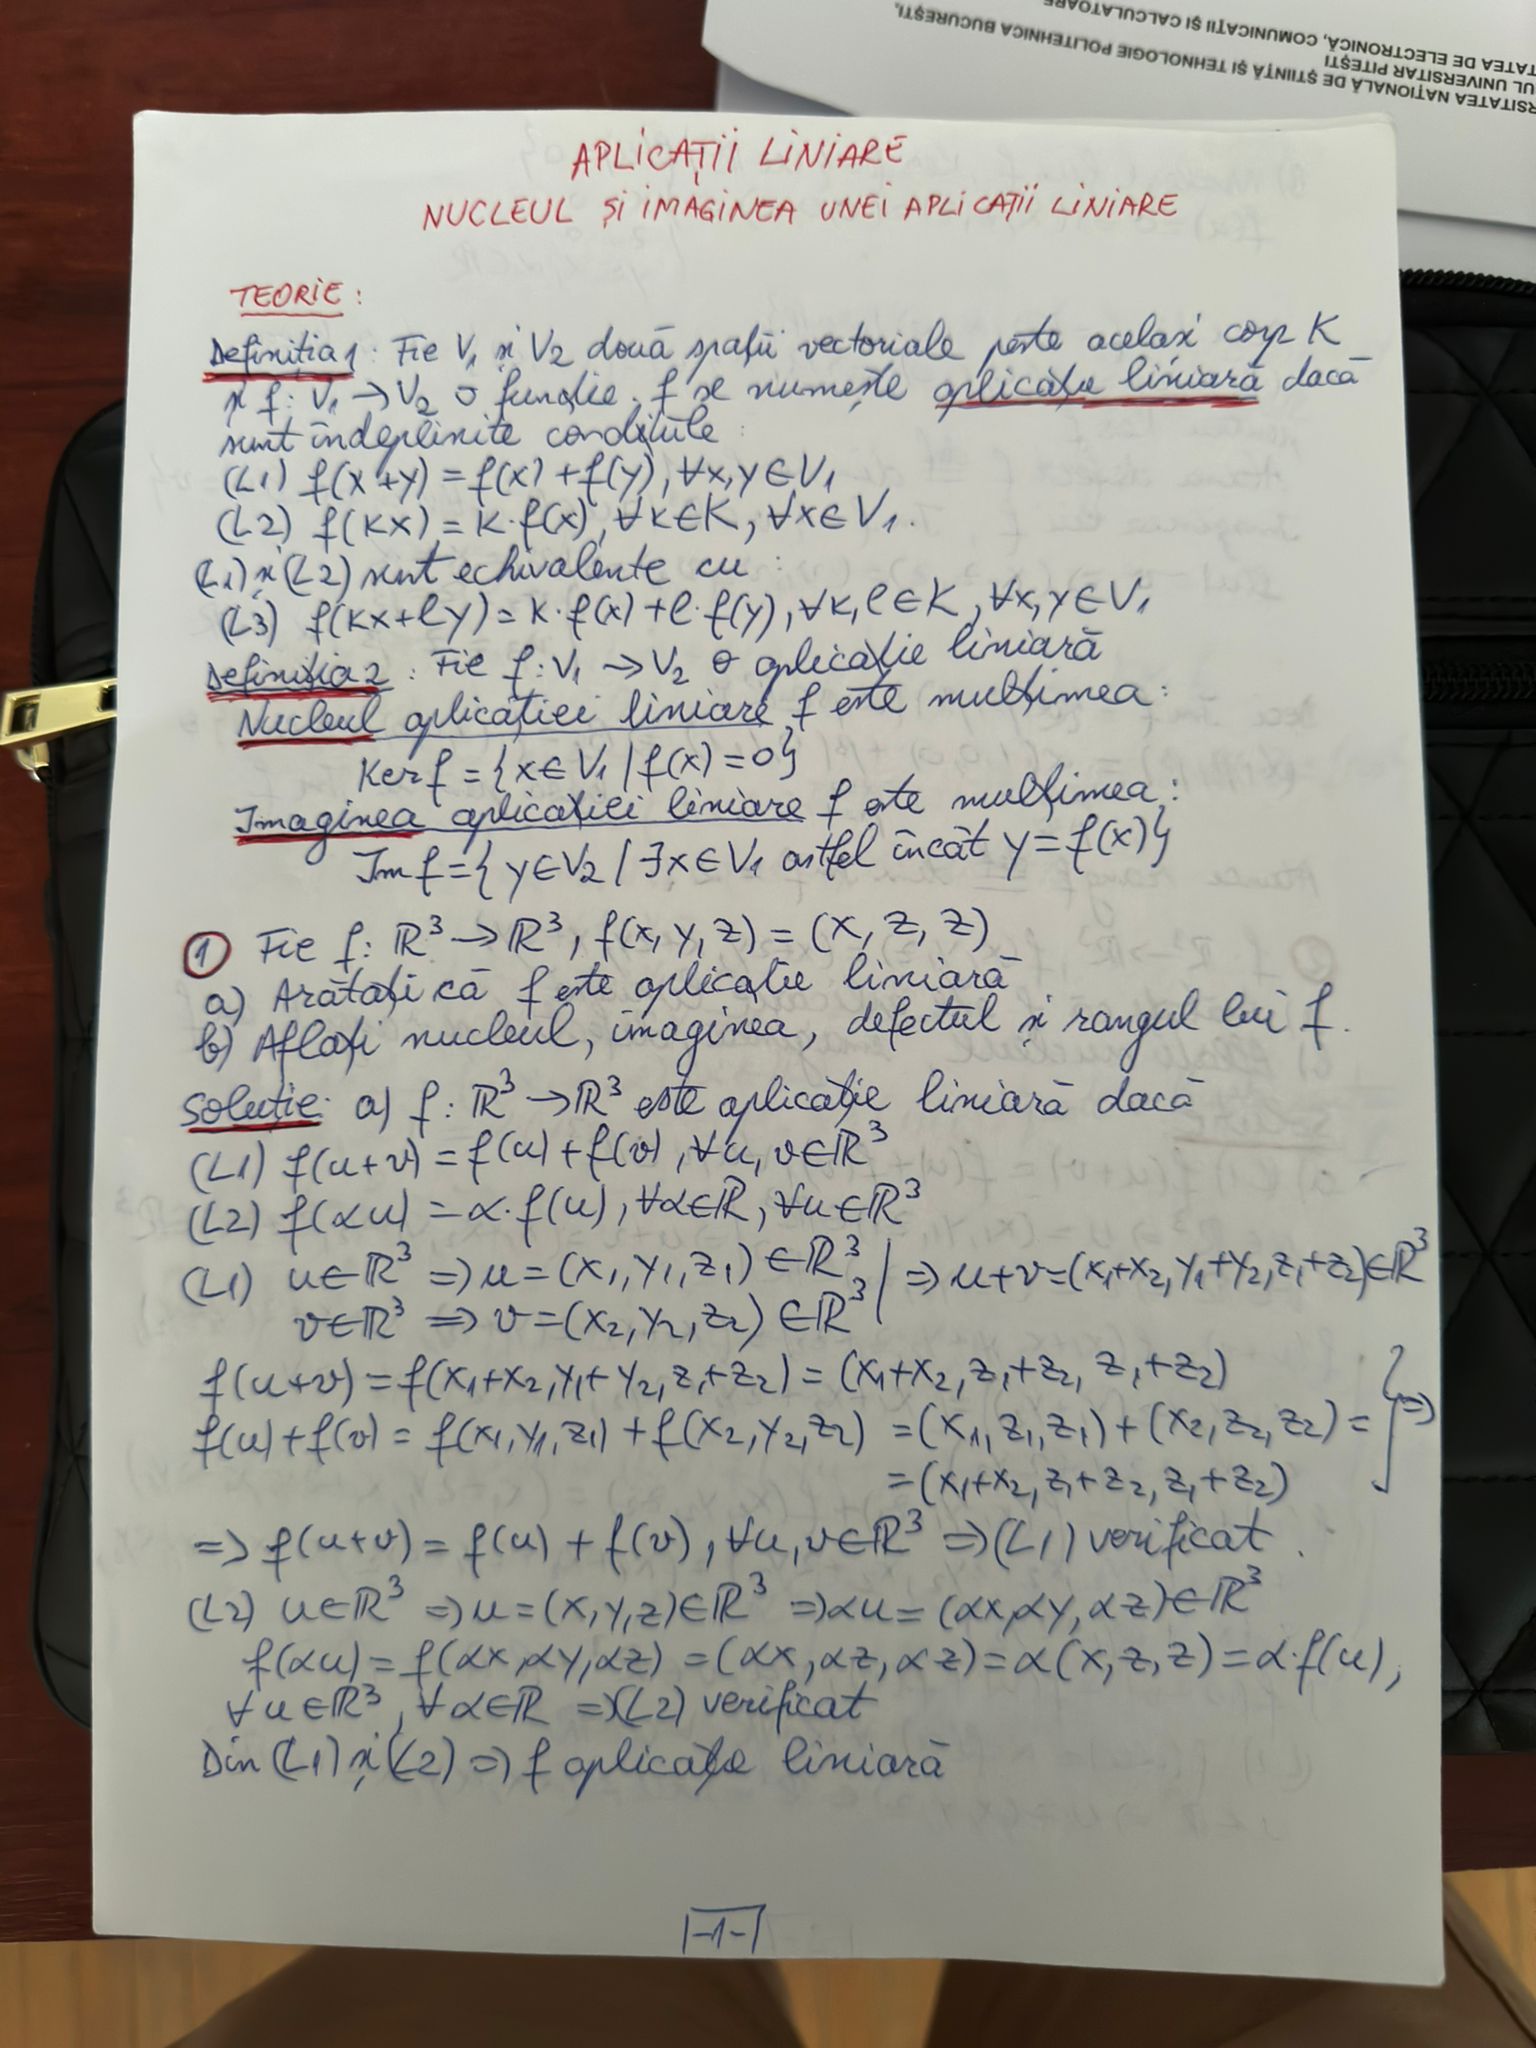 RSITATEA NAȚIONALĂ DE ȘTIINȚĂ ȘI TEHNOLOGIE POLITEHNICA BUCUREȘTI,
UL UNIVERSITAR PITEȘTI
TATEA DE ELECTRONICĂ, COMUNICAȚII ȘI CALCULATOARE
APLICAȚII LINIARE
NUCLEUL ȘI IMAGINEA UNEI APLICAȚII LINIARE
TEORIE:
Definiția 1: Fie V₁ și V₂ două spații vectoriale peste același corp K
și f: V₁ → V₂ o funcție. f se numește aplicație liniară dacă
sunt îndeplinite condițiile:
(L1) f(x+y) = f(x) + f(y), ∀x, y ∈ V₁
(L2) f(kx) = k·f(x), ∀k∈K, ∀x∈V₁.
(L1) și (L2) sunt echivalente cu:
(L3) f(kx+ly) = k·f(x) + l·f(y), ∀k, l ∈ K, ∀x, y ∈ V₁
Definiția 2: Fie f: V₁ → V₂ o aplicație liniară
Nucleul aplicației liniare f este mulțimea:
Ker f = {x ∈ V₁ | f(x) = 0}
Imaginea aplicației liniare f este mulțimea:
Im f = {y ∈ V₂ | ∃x ∈ V₁ astfel încât y = f(x)}
① Fie f: ℝ³ → ℝ³, f(x, y, z) = (x, z, z)
a) Arătați că f este aplicație liniară
b) Aflați nucleul, imaginea, defectul și rangul lui f.
Soluție: a) f: ℝ³ → ℝ³ este aplicație liniară dacă
(L1) f(u+v) = f(u) + f(v), ∀u, v∈ℝ³
(L2) f(αu) = α·f(u), ∀α∈ℝ, ∀u∈ℝ³
(L1) u∈ℝ³ ⇒ u = (x₁, y₁, z₁) ∈ℝ³ | ⇒ u+v = (x₁+x₂, y₁+y₂, z₁+z₂)∈ℝ³
v∈ℝ³ ⇒ v = (x₂, y₂, z₂) ∈ℝ³
f(u+v) = f(x₁+x₂, y₁+y₂, z₁+z₂) = (x₁+x₂, z₁+z₂, z₁+z₂)
f(u) + f(v) = f(x₁, y₁, z₁) + f(x₂, y₂, z₂) = (x₁, z₁, z₁) + (x₂, z₂, z₂) = } ⇒
= (x₁+x₂, z₁+z₂, z₁+z₂)
⇒ f(u+v) = f(u) + f(v), ∀u, v∈ℝ³ ⇒ (L1) verificat.
(L2) u∈ℝ³ ⇒ u = (x, y, z)∈ℝ³ ⇒ αu = (αx, αy, αz)∈ℝ³
f(αu) = f(αx, αy, αz) = (αx, αz, αz) = α(x, z, z) = α·f(u),
∀u∈ℝ³, ∀α∈ℝ ⇒ (L2) verificat
Din (L1) și (L2) ⇒ f aplicație liniară
|-1-|